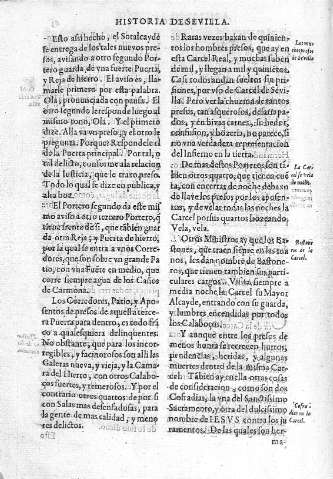 HISTORIA DE SEVILLA.
Esto assi hecho, el Sotalcayde
se entrega de los tales nuevos pre-
sos, avisando a otro segundo Por-
tero guarda, de una fuerte Puerta,
y Reja de hierro. El aviso es, lla-
marle primero por esta palabra.
Ola, pronunciada con pausa. El
otro segundo le responde luego al
mismo tono, Ola. Y el primero
dize. Alla va un preso, y el otro le
pregunta. Porque? Responde el
de la Puerta principal. Por tal, o
tal delicto, conforme a la relacion
de la Iusticia, que le traxo preso.
Todo lo qual se dize en publica, y
alta boz.
El Portero segundo da este mis-
mo aviso a otro tercero Portero, q̃
frente de si, que tãbien guar
da otra Reja, y Puerta de hierro,
por la qual se entra a unos Corre-
dores, que son sobre un grande Pa
tio, con una Fuente en medio, que
corre siempre agua de los Caños
de Carmona.
Los Corredores, Patio, y Apo-
sentos de presos de aquesta terce-
ra Puerta para dentro, es todo frã
co a qualesquiera delinquentes.
No obstante, que para los incor-
regibles, y facinorosos son alli las
Galeras nueva, y vieja, y la Cama
ra del Hierro, con otros Calabo-
ços fuertes, y temerosos. Y por el
contrario otros quartos de por si
con Salas mas desenfadosas, para
la gente de mas calidad, y meno
res delictos.
Raras vezes baxan de quinien-
tos los hombres presos, que ay en
esta Carcel Real, y muchas suben
de mil, y llegan a mil y quiniẽtos.
Casi todos andan sueltos sin pri-
siones, por uso de Carcel de Sevi-
lla. Pero ver la chusma de tantos
presos, tan asquerosos, y desarrapa-
dos, y en bivas carnes, su hedor,
confusion, y bozeria, no parece, si
no una verdadera representacion
del Infierno en la tierra.
De mas destos Porteros son tã-
bien otros quatro, que tienen cuẽ
ta, con encertar de noche debaxo
de llave los presos por los aposen-
tos, y de velar todas las noches la
Carcel por sus quartos bozeando,
Vela, vela.
Otros Ministros ay que los Ba-
stones, que traen siẽpre en las ma-
nos, les dan nombre de Bastone-
ros, que tienen tambien sus parti-
culares cargos. Visita siempre a
media noche la Carcel su Mayor
Alcayde, entrando con su guarda,
y lumbres encendidas por todos
los Calaboços.
Y aunque entre los presos de
menos suerte se recrecen hurtos,
pendencias, heridas, y algunas
muertes dentro de la misma Car-
cel: Tãbien ay en ella otras cosas
de consideracion, como son dos
Cofradias, la una del Sanctissimo
Sacramento, y otra del dulcissimo
nombre de IESVS contra los ju
ramentos. De las quales son her-
ma-
La Car-
cel se vela
de noche.
Bastone
ros de la
Carcel.
Cofra-
dias en la
Carcel.